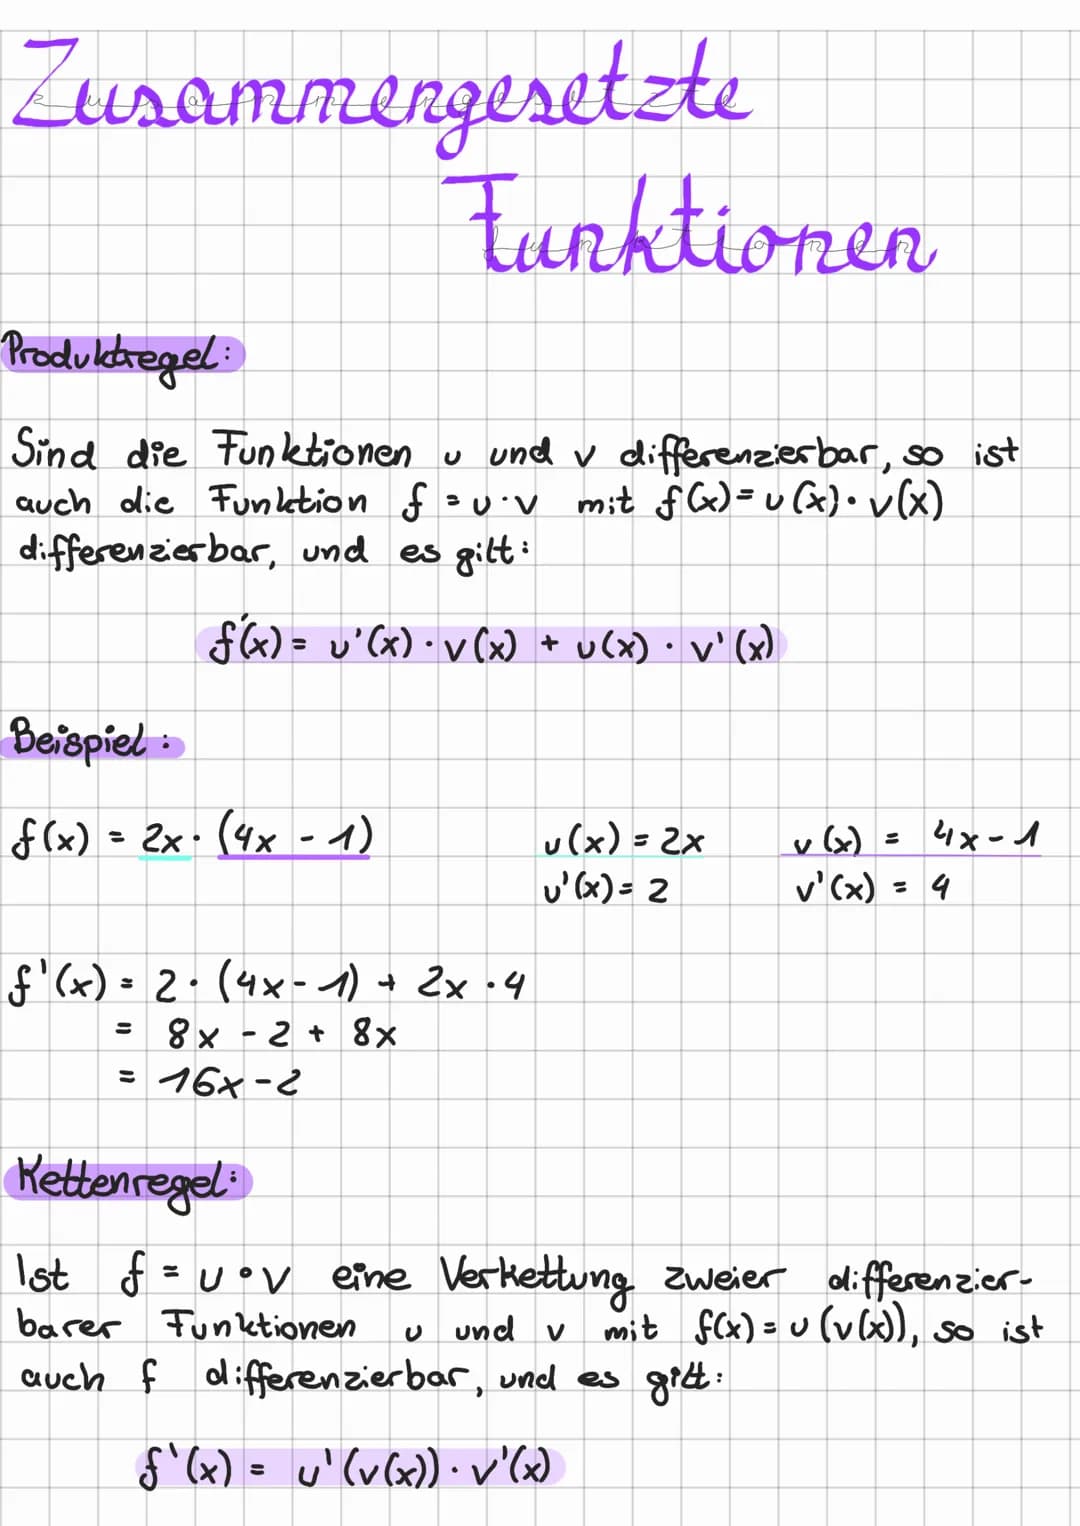 Zusammengesetzte
Funktionen
Produktregel:
Sind die Funktionen u und v differenzierbar, so ist
auch die Funktion f = u · v mit f(x) = u(x) · v(x)
differenzierbar, und es gilt:
f'(x) = u'(x) · v(x) + u(x) · v'(x)
Beispiel:
f(x) = 2x · (4x - 1) u(x) = 2x v(x) = 4x - 1
u'(x) = 2 v'(x) = 4
f'(x) = 2 · (4x - 1) + 2x · 4
= 8x - 2 + 8x
= 16x - 2
Kettenregel:
Ist f = u ∘ v eine Verkettung zweier differenzier-
barer Funktionen u und v mit f(x) = u(v(x)), so ist
auch f differenzierbar, und es gilt:
f'(x) = u'(v(x)) · v'(x)